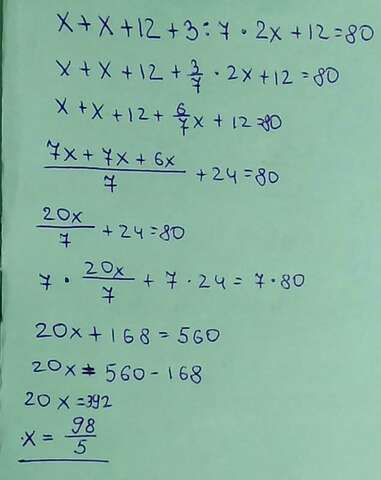 x+x+12+3:7·2x+12=80
x+x+12+3/7·2x+12=80
x+x+12+6/7x+12=80
(7x+7x+6x)/7+24=80
20x/7+24=80
7·20x/7+7·24=7·80
20x+168=560
20x=560-168
20x=392
x=98/5